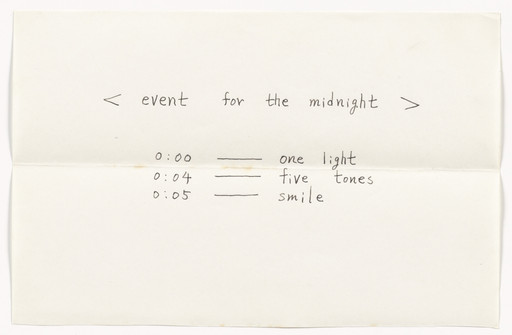 < event for the midnight >
0:00 —— one light
0:04 —— five tones
0:05 —— smile